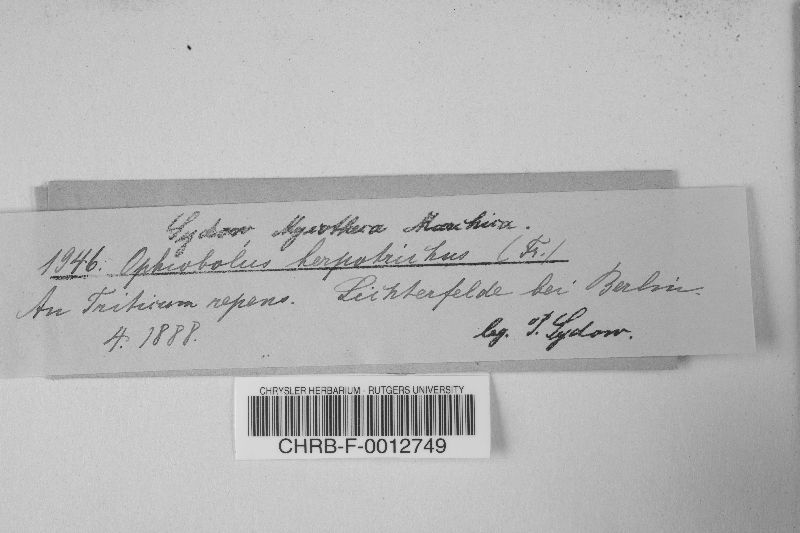 Sydow Mycotheca Marchica.
1946. Ophiobolus herpotrichus (Fr.)
An Triticum repens. Lichterfelde bei Berlin.
4. 1888.
leg. P. Sydow.
CHRYSLER HERBARIUM - RUTGERS UNIVERSITY
CHRB-F-0012749